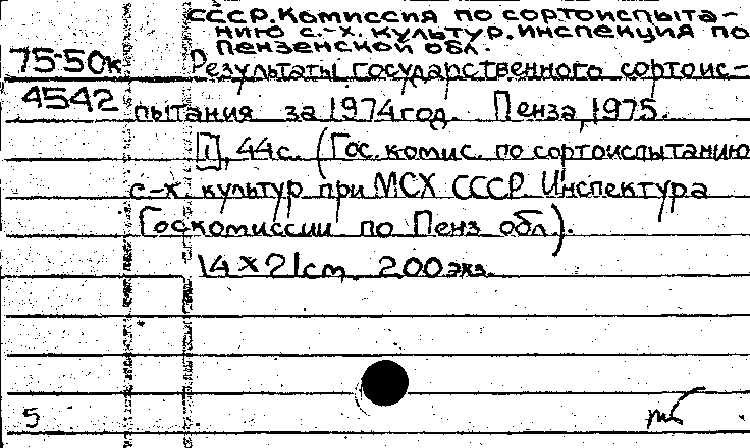 СССР. Комиссия по сортоиспыта-
нию с.-х. культур. Инспекция по
Пензенской обл.
75-50к
Результаты государственного сортоис-
4542
пытания за 1974 год. Пенза, 1975.
[1], 44с. (Гос. комис. по сортоиспытанию
с-х культур при МСХ СССР. Инспектура
Госкомиссии по Пенз обл.).
14×21см. 200 экз.
5